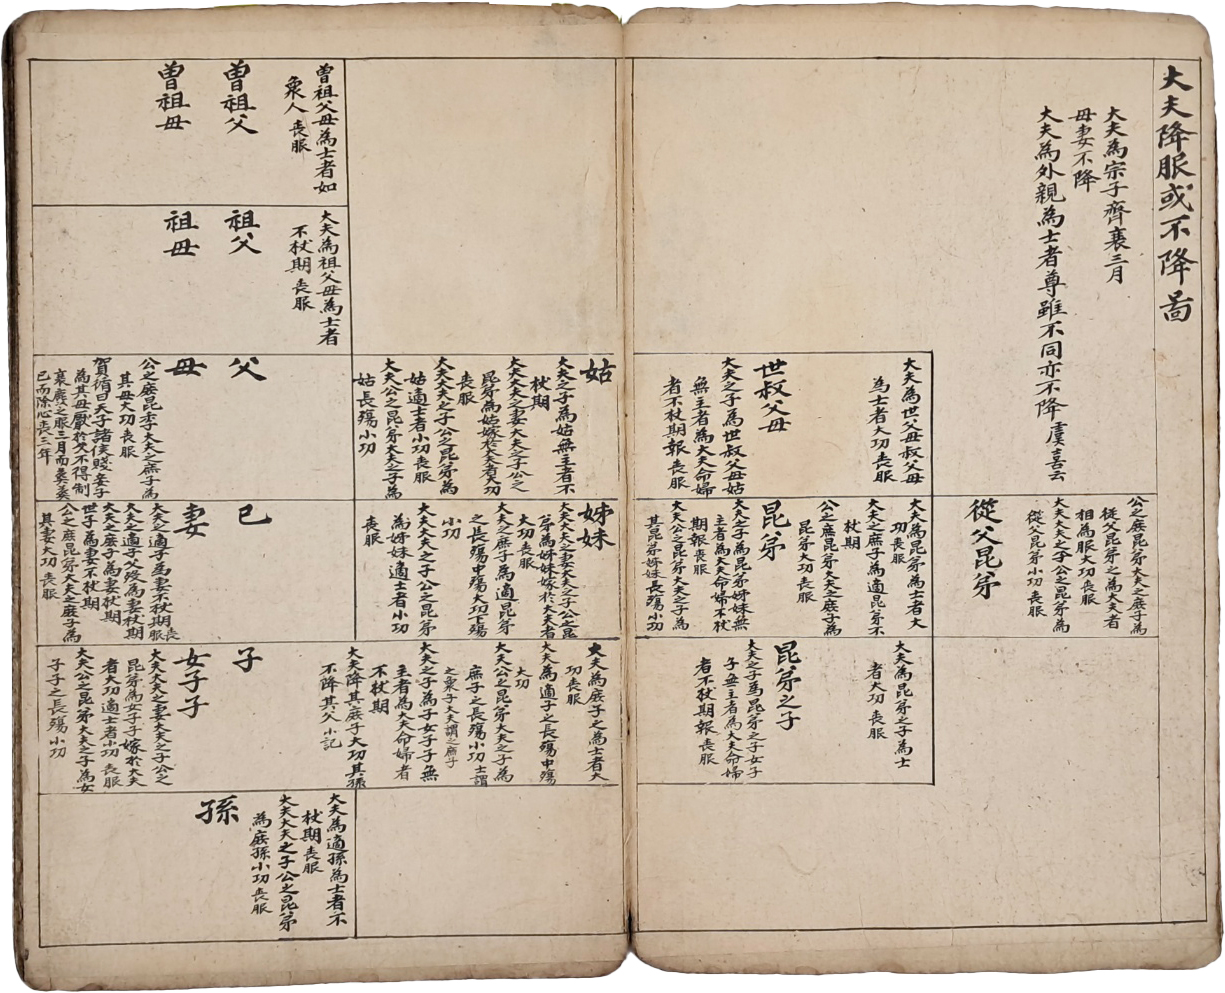 大夫降服或不降啚
大夫為宗子齊衰三月
母妻不降
大夫為外親為士者尊雖不同亦不降虞喜云
公之庶昆弟大夫之庶子為
從父昆弟之為大夫者
相為服大功喪服
大夫大夫之子公之昆弟為
從父昆弟小功喪服
從父昆弟
大夫為世父母叔父母
為士者大功喪服
世叔父母
大夫之子為世叔父母姑
無主者為大夫命婦
者不杖期報喪服
大夫為昆弟為士者大
功喪服
大夫之庶子為適昆弟不
杖期
公之庶昆弟大夫之庶子為
昆弟大功喪服
昆弟
大夫之子為昆弟姊妹無
主者為大夫命婦不杖
期報喪服
大夫公之昆弟大夫之子為
其昆弟姊妹長殤小功
大夫為昆弟之子為士
者大功喪服
昆弟之子
大夫之子為昆弟之子女子
子無主者為大夫命婦
者不杖期報喪服
姑
大夫之子為姑無主者不
杖期
大夫大夫之妻大夫之子公之
昆弟為姑嫁於大夫者大功
喪服
大夫大夫之子公之昆弟為
姑適士者小功喪服
大夫公之昆弟大夫之子為
姑長殤小功
姊妹
大夫大夫之妻大夫之子公之昆
弟為姊妹嫁於大夫者
大功喪服
大夫之庶子為適昆弟
之長殤中殤大功下殤
小功
大夫大夫之子公之昆弟
為姊妹適士者小功
喪服
大夫為庶子之為士者大
功喪服
大夫為適子之長殤中殤
大功
大夫公之昆弟大夫之子為
庶子之長殤小功士謂
之衆子大夫謂之庶子
大夫之子為子女子子無
主者為大夫命婦者
不杖期
大夫降其庶子大功其孫
不降其父小記
曾祖父母為士者如
衆人喪服
曾祖父
曾祖母
大夫為祖父母為士者
不杖期喪服
祖父
祖母
父
母
公之庶昆季大夫之庶子為
其母大功喪服
賀循曰天子諸侯賤妾子
為其母厭於父不得制
衰麻之服三月而葬葬
已而除心喪三年
己
妻
大夫適子為妻不杖期喪服
大夫適子父歿為妻杖期
大夫之庶子為妻杖期
世子為妻不杖期
公之庶昆弟大夫之庶子為
其妻大功喪服
子
女子子
大夫大夫之妻大夫之子公之
昆弟為女子子嫁於大夫
者大功適士者小功喪服
大夫公之昆弟大夫之子為女
子子之長殤小功
大夫為適孫為士者不
杖期喪服
大夫大夫之子公之昆弟
為庶孫小功喪服
孫